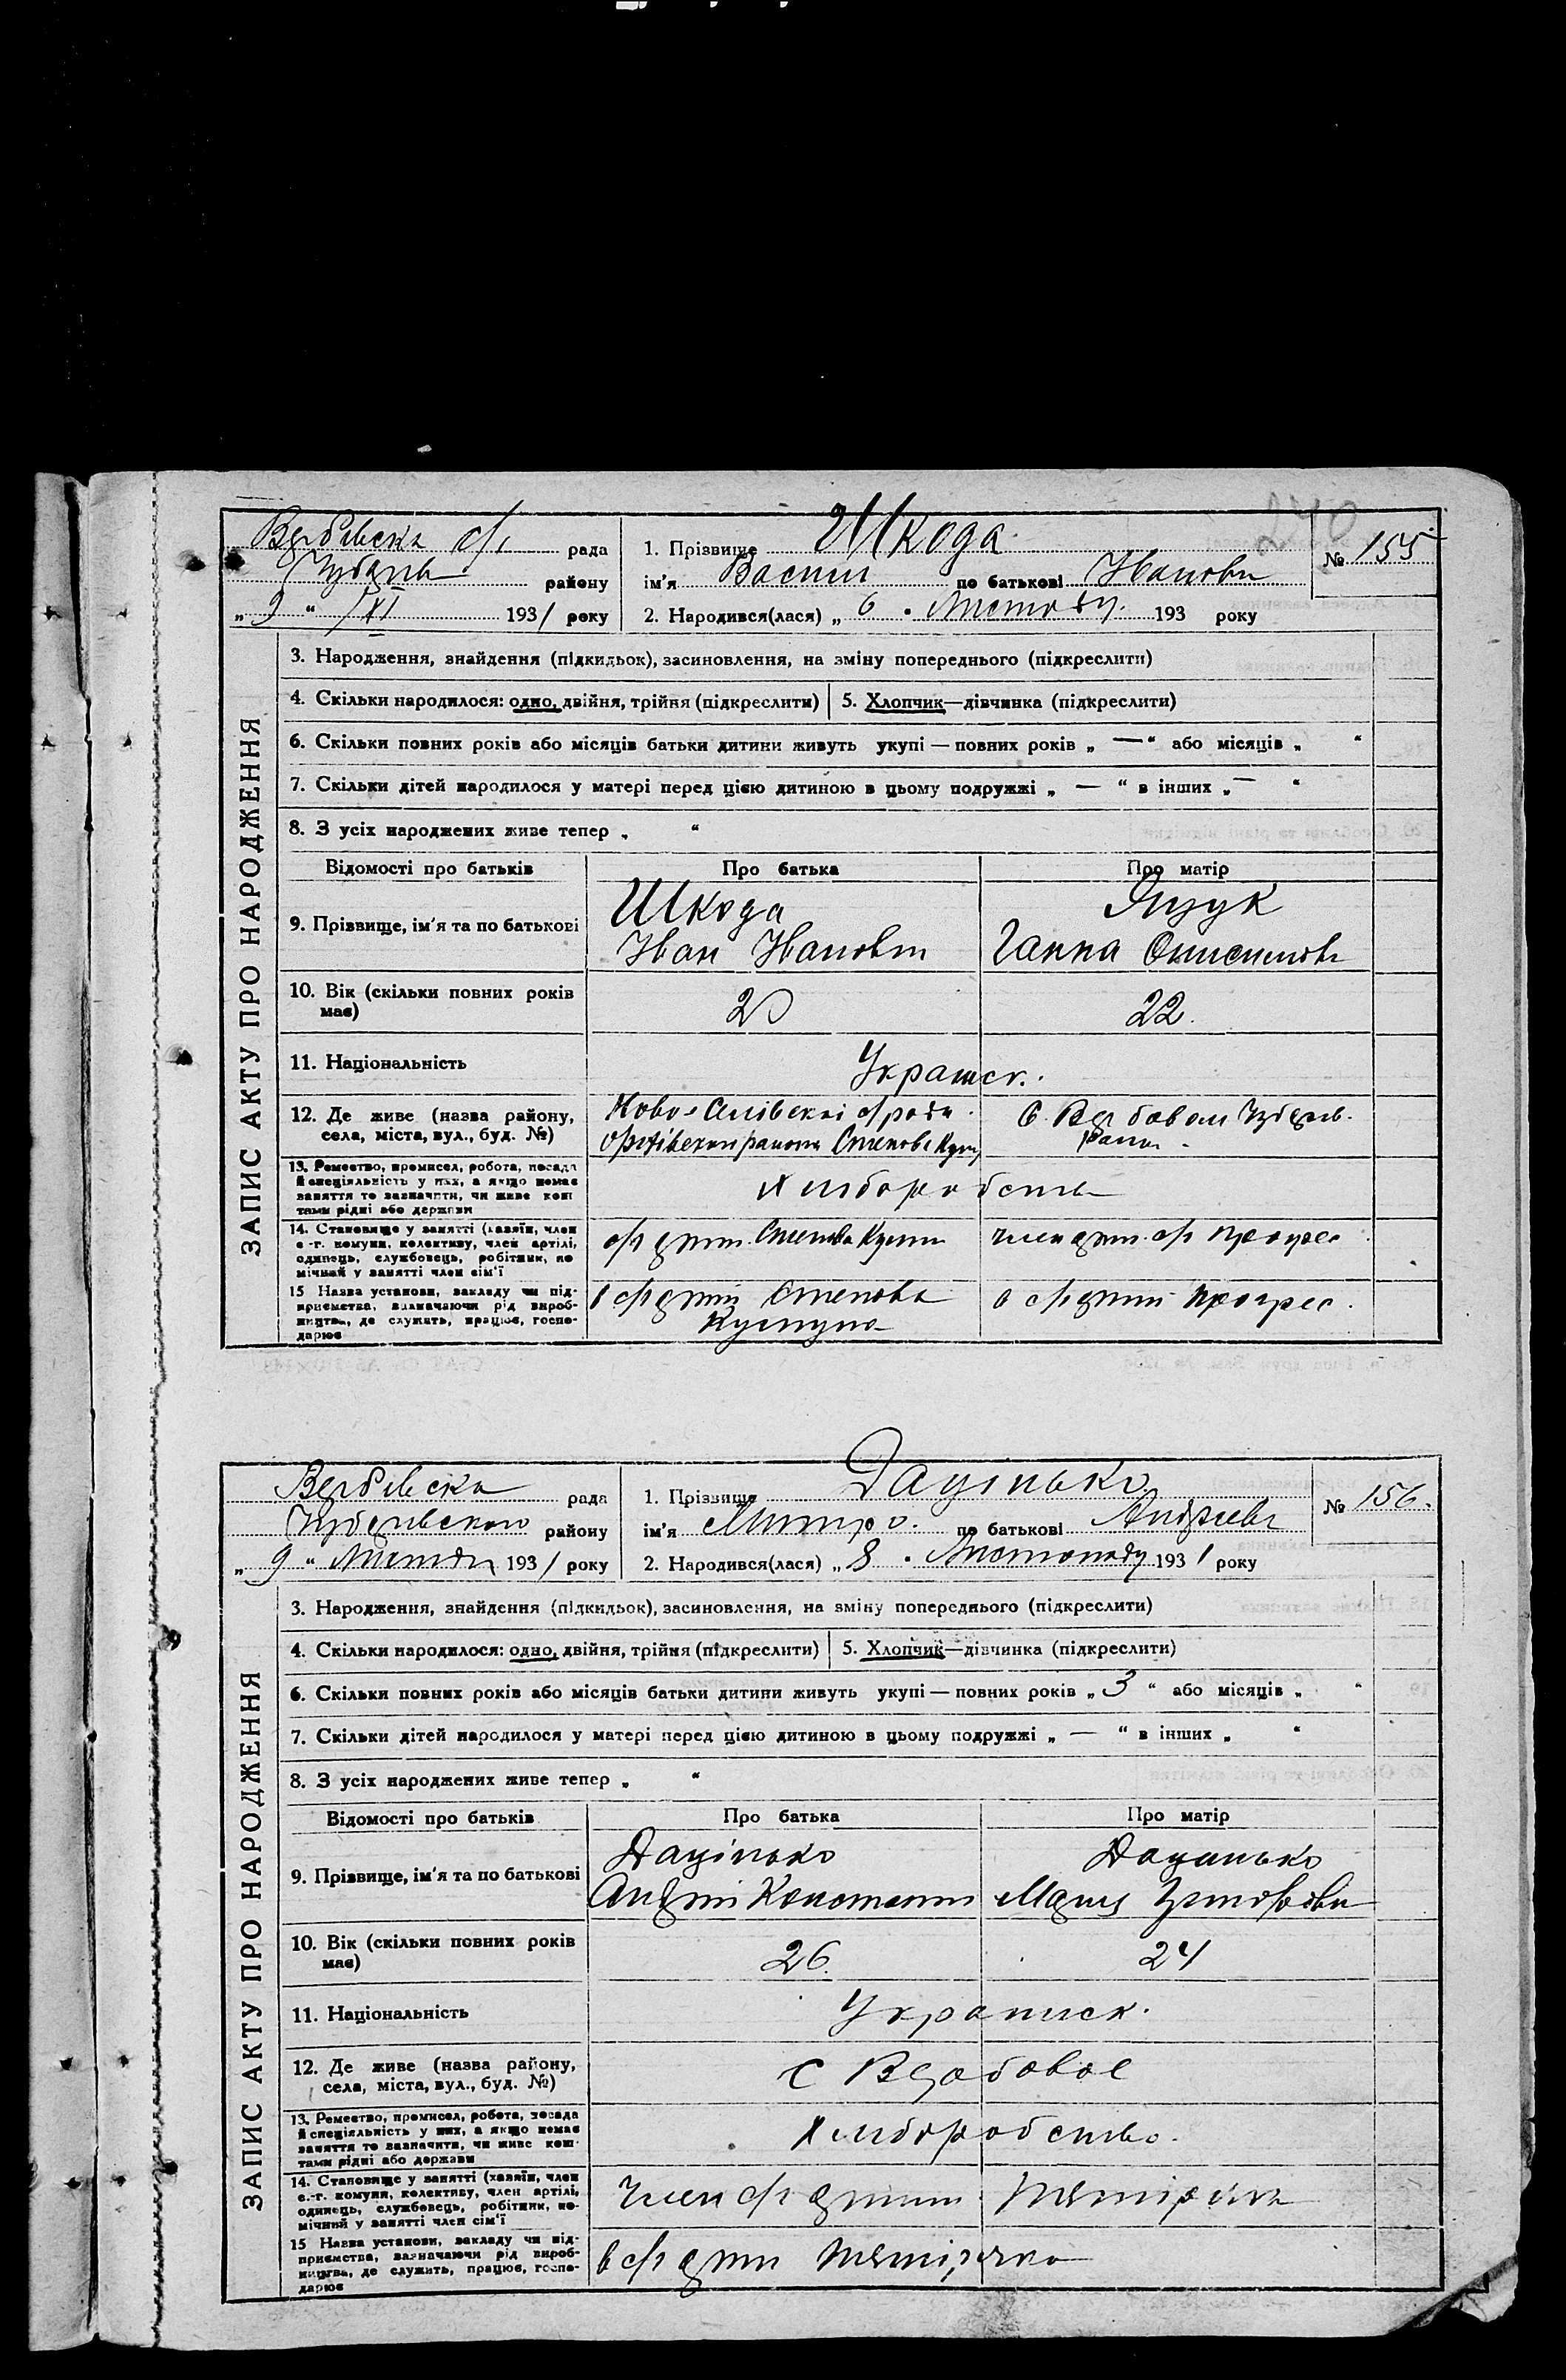 240
Вербівська с/г рада
Чубарів району
„ 9 “ /XI 1931 року
1. Прізвище Шкода
ім'я Василь по батькові Іванови
№ 155
2. Народився(лася) „ 6 Листопаду 193 року
ЗАПИС АКТУ ПРО НАРОДЖЕННЯ
3. Народження, знайдення (підкидьок), засиновлення, на зміну попереднього (підкреслити)
4. Скільки народилося: одно, двійня, трійня (підкреслити) 5. Хлопчик—дівчинка (підкреслити)
6. Скільки повних років або місяців батьки дитини живуть укупі — повних років „ — “ або місяців „ “
7. Скільки дітей народилося у матері перед цією дитиною в цьому подружжі „ — “ в інших „ — “
8. З усіх народжених живе тепер „ “
Відомості про батьків Про батька Про матір
9. Прізвище, ім'я та по батькові
Шкода
Іван Іванович
Ганна
10. Вік (скільки повних років
має)
20 22.
11. Національність Українск.
12. Де живе (назва району,
села, міста, вул., буд. №)
Ново-Селівської с/ради
Оріхівского району Степова
с. Вербовом Чубарів.
район
13. Ремество, промисел, робота, посада
й спеціяльність у них, а якщо немає
заняття то зазначити, чи живе кош
тами рідні або держави
Хліборобств
14. Становище у занятті (хазяїн, член
с.-г. комуни, колективу, член артілі,
одинець, службовець, робітник, по
мічний у занятті член сім'ї
с/г арт. Степова
член арт. с/г Прогрес
15 Назва установи, закладу чи під-
приємства, визначаючи рід вироб-
ництва, де служить, працює, госпо-
дарює
в с/г арті Степова
в с/г артіі Прогрес.
Вербівська рада
Чубарівського району
„ 9 “ Листопд 1931 року
1. Прізвище Даценько
ім'я Митро по батькові Андріев
№ 156.
2. Народився(лася) „ 8 Листопаду 1931 року
ЗАПИС АКТУ ПРО НАРОДЖЕННЯ
3. Народження, знайдення (підкидьок), засиновлення, на зміну попереднього (підкреслити)
4. Скільки народилося: одно, двійня, трійня (підкреслити) 5. Хлопчик—дівчинка (підкреслити)
6. Скільки повних років або місяців батьки дитини живуть укупі — повних років „ 3 “ або місяців „ “
7. Скільки дітей народилося у матері перед цією дитиною в цьому подружжі „ — “ в інших „ “
8. З усіх народжених живе тепер „ “
Відомості про батьків Про батька Про матір
9. Прізвище, ім'я та по батькові
Дацінько Даценько
Андрій Констант Марія
10. Вік (скільки повних років
має)
26. 24
11. Національність Українск.
12. Де живе (назва району,
села, міста, вул., буд. №)
с Вербовое
13. Ремество, промисел, робота, посада
й спеціяльність у них, а якщо немає
заняття то зазначити, чи живе кош-
тами рідні або держави
Хліборобство.
14. Становище у занятті (хазяїн, член
с.-г. комуни, колективу, член артілі,
одинець, службовець, робітник, по-
мічний у занятті член сім'ї
член с/г артіл Пятірічка
15 Назва установи, закладу чи під-
приємства, зазначаючи рід вироб-
ництва, де служить, працює, госпо-
дарює
в с/г арт Пятірічка